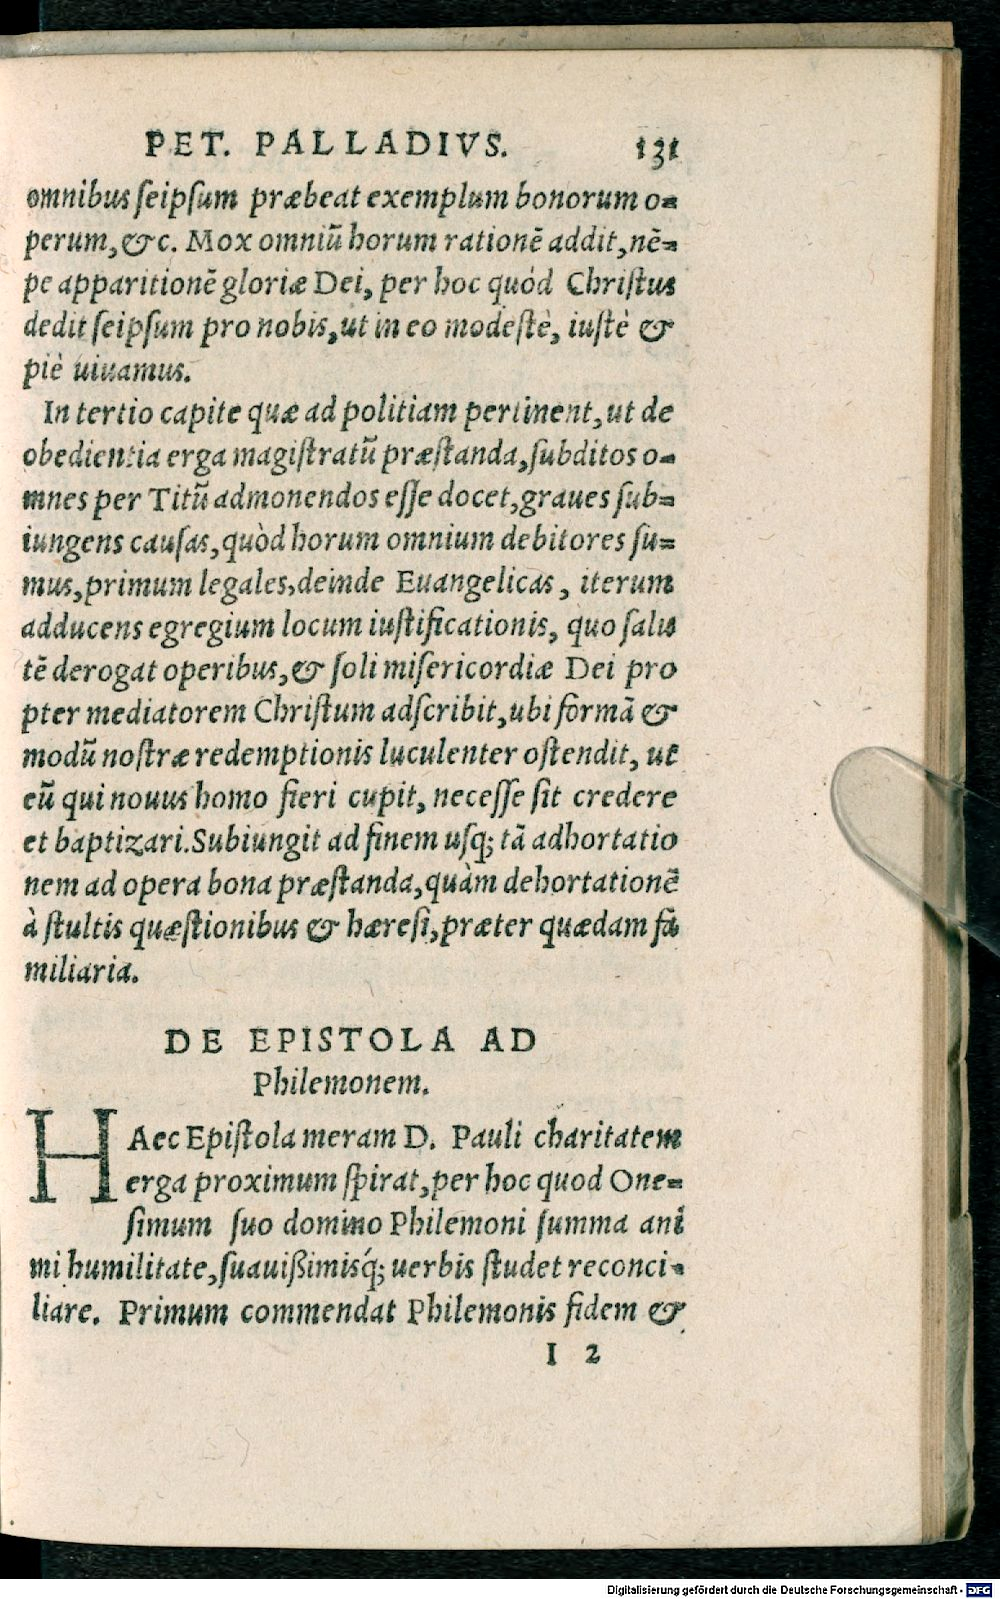 PET. PALLADIVS. 131
omnibus ſeipſum præbeat exemplum bonorum o=
perum, &c. Mox omniũ horum rationẽ addit, nẽ=
pe apparitionẽ gloriæ Dei, per hoc quòd Chriſtus
dedit ſeipſum pro nobis, ut in eo modeſtè, iuſtè &
piè uiuamus.
In tertio capite quæ ad politiam pertinent, ut de
obedientia erga magiſtratũ præſtanda, ſubditos o=
mnes per Titũ admonendos eſſe docet, graues ſub=
iungens cauſas, quòd horum omnium debitores ſu=
mus, primum legales, deinde Euangelicas, iterum
adducens egregium locum iuſtificationis, quo ſalu
tẽ derogat operibus, & ſoli miſericordiæ Dei pro
pter mediatorem Chriſtum adſcribit, ubi formã &
modũ noſtræ redemptionis luculenter oſtendit, ut
eũ qui nouus homo fieri cupit, neceſſe ſit credere
et baptizari. Subiungit ad finem uſq; tã adhortatio
nem ad opera bona præſtanda, quàm dehortationẽ
à ſtultis quæſtionibus & hæreſi, præter quædam fa
miliaria.
DE EPISTOLA AD
Philemonem.
HAec Epiſtola meram D. Pauli charitatem
erga proximum ſpirat, per hoc quod One=
ſimum ſuo domino Philemoni ſumma ani
mi humilitate, ſuauißimisq́; uerbis ſtudet reconci=
liare. Primum commendat Philemonis fidem &
I 2
Digitalisierung gefördert durch die Deutsche Forschungsgemeinschaft - DFG